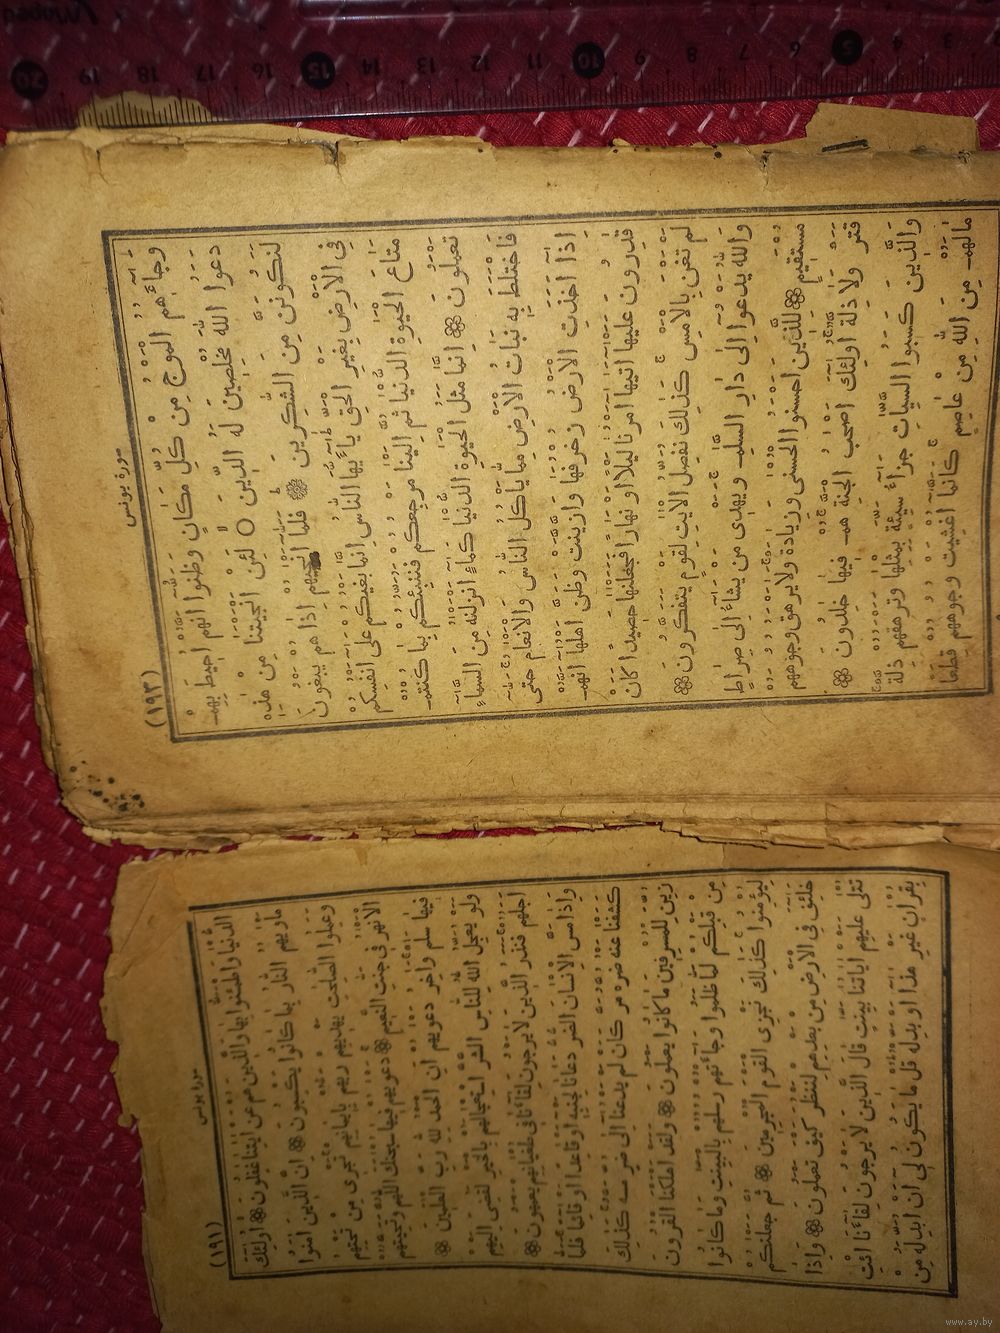 (١٩٣) سورة يونس
وَجَآءَهُمُ الْمَوْجُ مِنْ كُلِّ مَكَانٍ وَظَنُّوا اَنَّهُمْ اُحِيطَ بِهِمْ
دَعَوُا اللّٰهَ مُخْلِصِينَ لَهُ الدِّينَ ○ لَئِنْ اَنْجَيْتَنَا مِنْ هٰذِهِ
لَنَكُونَنَّ مِنَ الشّٰكِرِينَ ۞ فَلَمَّآ اَنْجٰيهُمْ اِذَا هُمْ يَبْغُونَ
فِى الْاَرْضِ بِغَيْرِ الْحَقِّ يَآ اَيُّهَا النَّاسُ اِنَّمَا بَغْيُكُمْ عَلٰٓى اَنْفُسِكُمْ
مَتَاعَ الْحَيٰوةِ الدُّنْيَا ثُمَّ اِلَيْنَا مَرْجِعُكُمْ فَنُنَبِّئُكُمْ بِمَا كُنْتُمْ
تَعْمَلُونَ ۞ اِنَّمَا مَثَلُ الْحَيٰوةِ الدُّنْيَا كَمَآءٍ اَنْزَلْنٰهُ مِنَ السَّمَآءِ
فَاخْتَلَطَ بِهِ نَبَاتُ الْاَرْضِ مِمَّا يَاْكُلُ النَّاسُ وَالْاَنْعَامُ حَتّٰى
اِذَآ اَخَذَتِ الْاَرْضُ زُخْرُفَهَا وَازَّيَّنَتْ وَظَنَّ اَهْلُهَآ اَنَّهُمْ
قٰدِرُونَ عَلَيْهَآ اَتٰيهَآ اَمْرُنَا لَيْلًا اَوْ نَهَارًا فَجَعَلْنٰهَا حَصِيدًا كَاَنْ
لَمْ تَغْنَ بِالْاَمْسِ كَذٰلِكَ نُفَصِّلُ الْاٰيٰتِ لِقَوْمٍ يَتَفَكَّرُونَ ۞
وَاللّٰهُ يَدْعُوٓا اِلٰى دَارِ السَّلٰمِ وَيَهْدِى مَنْ يَشَآءُ اِلٰى صِرَاطٍ
مُسْتَقِيمٍ ۞ لِلَّذِينَ اَحْسَنُوا الْحُسْنٰى وَزِيَادَةٌ وَلَا يَرْهَقُ وُجُوهَهُمْ
قَتَرٌ وَلَا ذِلَّةٌ اُولٰٓئِكَ اَصْحٰبُ الْجَنَّةِ هُمْ فِيهَا خٰلِدُونَ ۞
وَالَّذِينَ كَسَبُوا السَّيِّاٰتِ جَزَآءُ سَيِّئَةٍ بِمِثْلِهَا وَتَرْهَقُهُمْ ذِلَّةٌ
مَالَهُمْ مِنَ اللّٰهِ مِنْ عَاصِمٍ كَاَنَّمَآ اُغْشِيَتْ وُجُوهُهُمْ قِطَعًا
(١٩١) سورة يونس
الدُّنْيَا وَاطْمَاَنُّوا بِهَا وَالَّذِينَ هُمْ عَنْ اٰيٰتِنَا غٰفِلُونَ ۞ اُولٰٓئِكَ
مَاْوٰيهُمُ النَّارُ بِمَا كَانُوا يَكْسِبُونَ ۞ اِنَّ الَّذِينَ اٰمَنُوا
وَعَمِلُوا الصّٰلِحٰتِ يَهْدِيهِمْ رَبُّهُمْ بِاِيمَانِهِمْ تَجْرِى مِنْ تَحْتِهِمُ
الْاَنْهٰرُ فِى جَنّٰتِ النَّعِيمِ ۞ دَعْوٰيهُمْ فِيهَا سُبْحٰنَكَ اللّٰهُمَّ وَتَحِيَّتُهُمْ
فِيهَا سَلٰمٌ وَاٰخِرُ دَعْوٰيهُمْ اَنِ الْحَمْدُ لِلّٰهِ رَبِّ الْعٰلَمِينَ ۞
وَلَوْ يُعَجِّلُ اللّٰهُ لِلنَّاسِ الشَّرَّ اسْتِعْجَالَهُمْ بِالْخَيْرِ لَقُضِىَ اِلَيْهِمْ
اَجَلُهُمْ فَنَذَرُ الَّذِينَ لَا يَرْجُونَ لِقَآءَنَا فِى طُغْيَانِهِمْ يَعْمَهُونَ ۞
وَاِذَا مَسَّ الْاِنْسَانَ الضُّرُّ دَعَانَا لِجَنْبِهٖٓ اَوْ قَاعِدًا اَوْ قَآئِمًا فَلَمَّا
كَشَفْنَا عَنْهُ ضُرَّهُ مَرَّ كَاَنْ لَمْ يَدْعُنَآ اِلٰى ضُرٍّ مَسَّهُ كَذٰلِكَ
زُيِّنَ لِلْمُسْرِفِينَ مَا كَانُوا يَعْمَلُونَ ۞ وَلَقَدْ اَهْلَكْنَا الْقُرُونَ
مِنْ قَبْلِكُمْ لَمَّا ظَلَمُوا وَجَآءَتْهُمْ رُسُلُهُمْ بِالْبَيِّنٰتِ وَمَا كَانُوا
لِيُؤْمِنُوا كَذٰلِكَ نَجْزِى الْقَوْمَ الْمُجْرِمِينَ ۞ ثُمَّ جَعَلْنٰكُمْ
خَلٰٓئِفَ فِى الْاَرْضِ مِنْ بَعْدِهِمْ لِنَنْظُرَ كَيْفَ تَعْمَلُونَ ۞ وَاِذَا
تُتْلٰى عَلَيْهِمْ اٰيَاتُنَا بَيِّنٰتٍ قَالَ الَّذِينَ لَا يَرْجُونَ لِقَآءَنَا ائْتِ
بِقُرْاٰنٍ غَيْرِ هٰذَآ اَوْ بَدِّلْهُ قُلْ مَا يَكُونُ لِٓى اَنْ اُبَدِّلَهُ مِنْ
20 19 18 17 16 15 14 13 12 11 10 9 8 7 6 5 4 3
www.ay.by